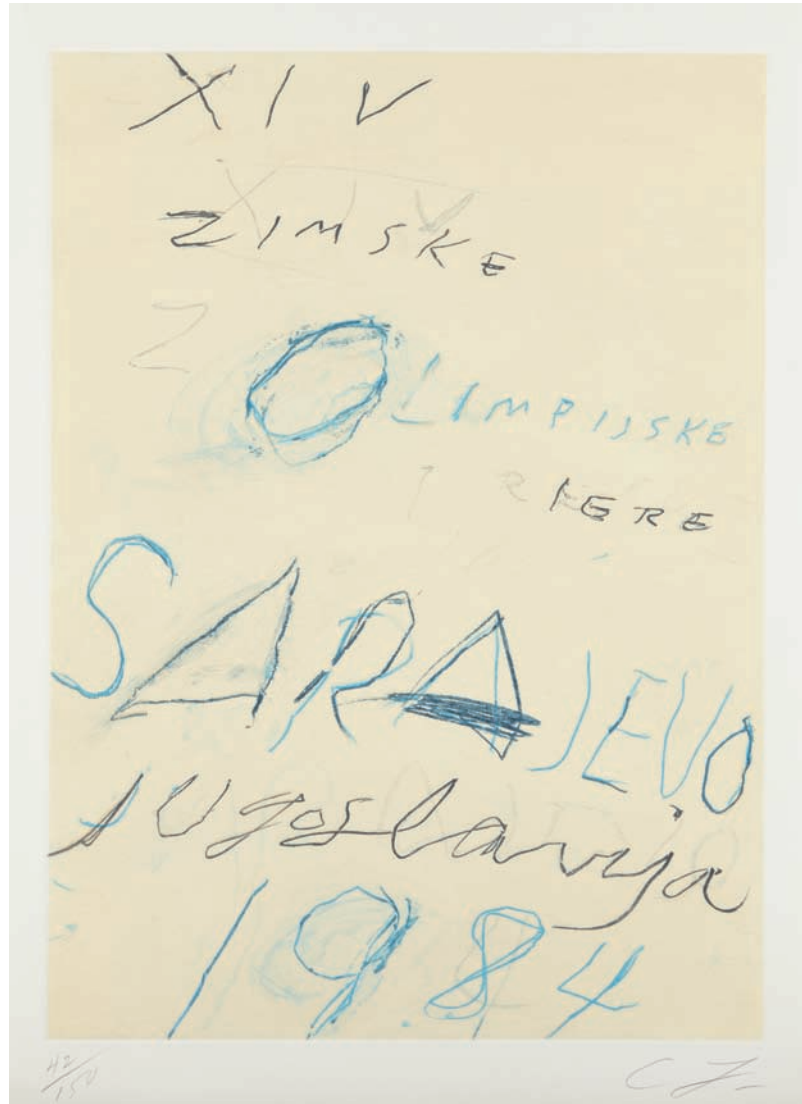 XIV
ZIMSKE
OLIMPIJSKE
IGRE
SARAJEVO
Jugoslavija
1984
42/150